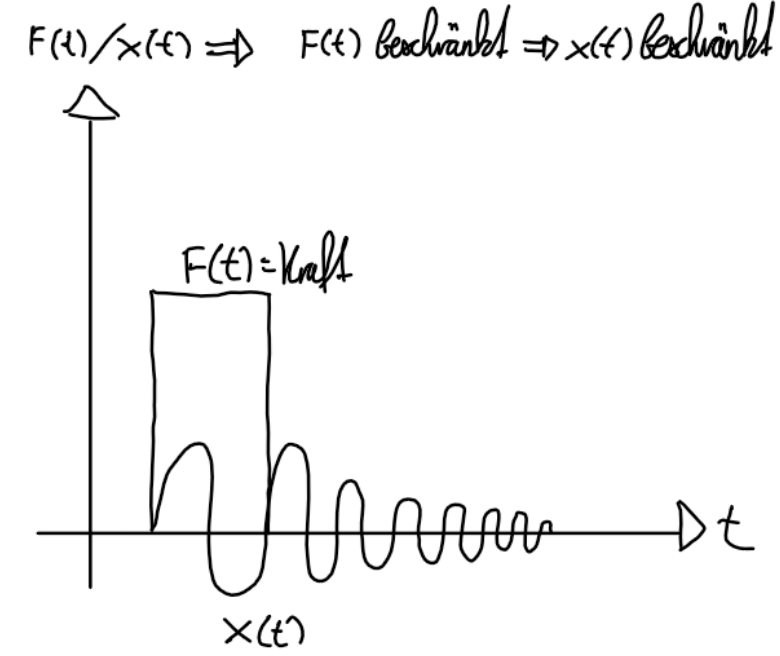 F(t)/x(t) ⇒ F(t) beschränkt ⇒ x(t) beschränkt
F(t)=Kraft
t
x(t)